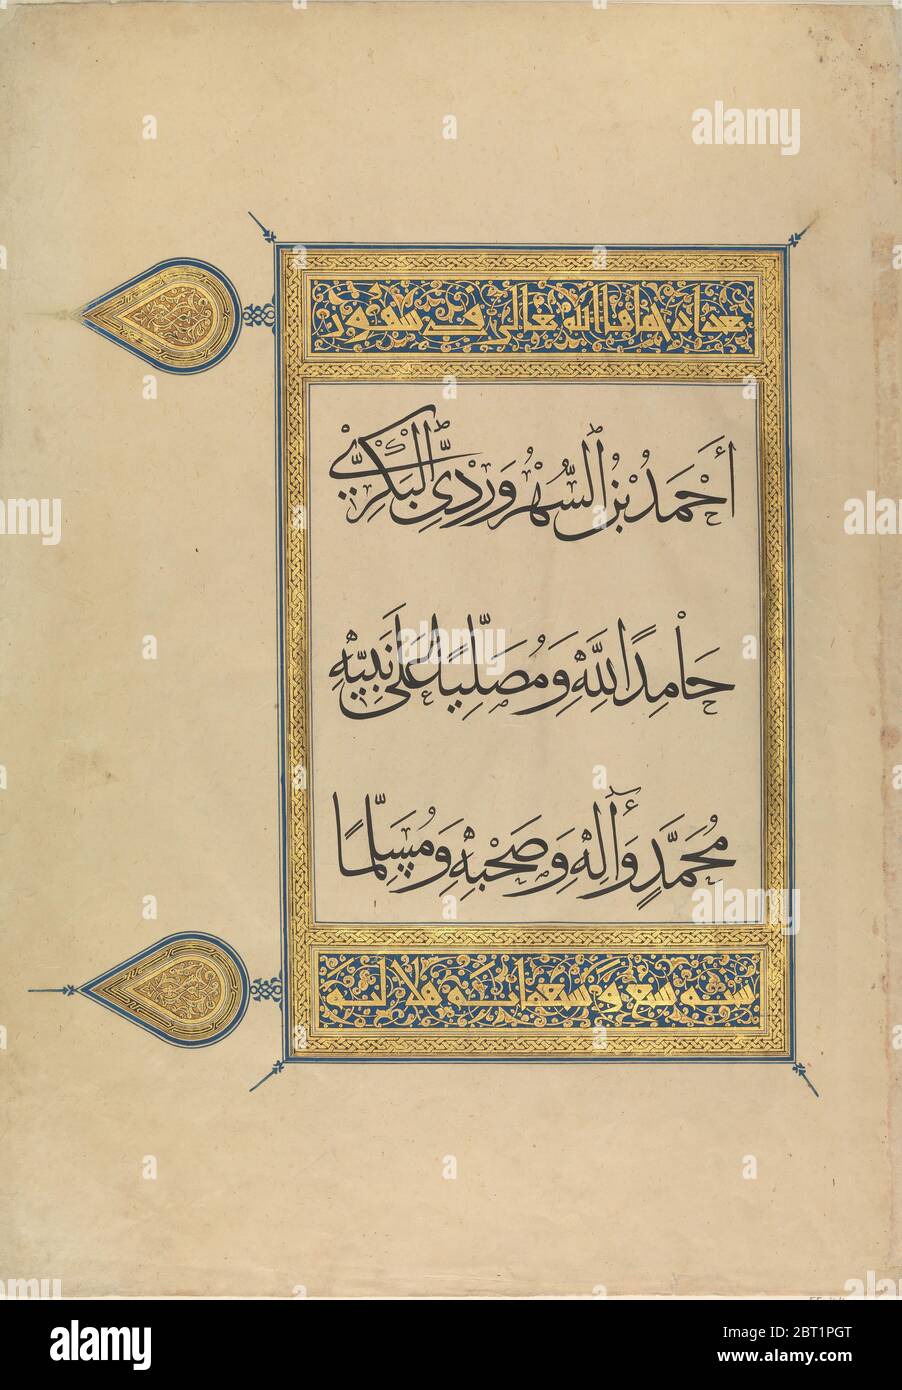 بغداد حماها الله تعالى في شهور
أَحْمَدُ بْنُ السُّهْرَوَرْدِيِّ الْبَكْرِيِّ
حَامِدًا لِلَّهِ وَمُصَلِّيًا عَلَى نَبِيِّهِ
مُحَمَّدٍ وَآلِهِ وَصَحْبِهِ وَمُسَلِّمًا
سنة سبع وسبعمائة هلالية
alamy
alamy
Image ID: 2BT1PGT
www.alamy.com